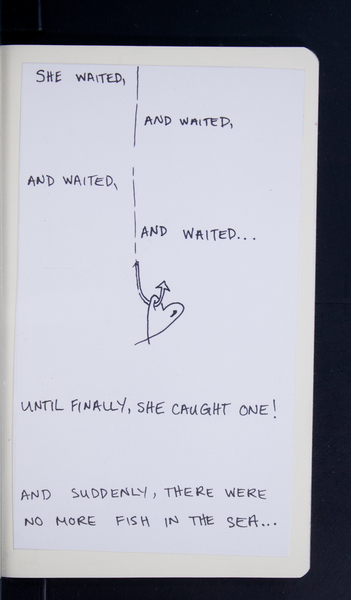 SHE WAITED,
AND WAITED,
AND WAITED,
AND WAITED...
UNTIL FINALLY, SHE CAUGHT ONE!
AND SUDDENLY, THERE WERE
NO MORE FISH IN THE SEA...